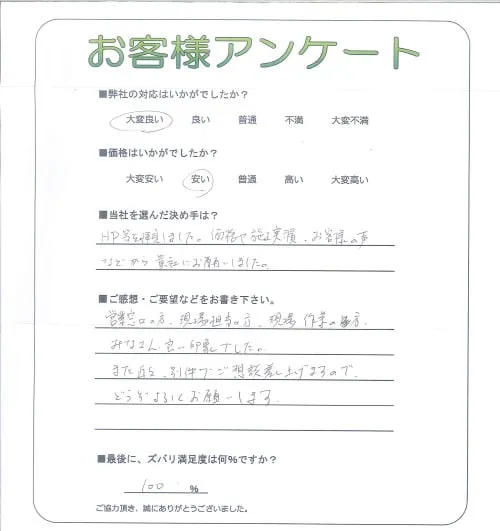 お客様アンケート
■弊社の対応はいかがでしたか？
大変良い 良い 普通 不満 大変不満
■価格はいかがでしたか？
大変安い 安い 普通 高い 大変高い
■当社を選んだ決め手は？
HP等を拝見しました。価格や施工実績、お客様の声
などから貴社にお願いしました。
■ご感想・ご要望などをお書き下さい。
営業窓口の方、現場担当の方、現場作業の方、
みなさん良い印象でした。
また、別件でご相談差し上げますので、
どうぞよろしくお願いします。
■最後に、ズバリ満足度は何％ですか？
100 ％
ご協力頂き、誠にありがとうございました。